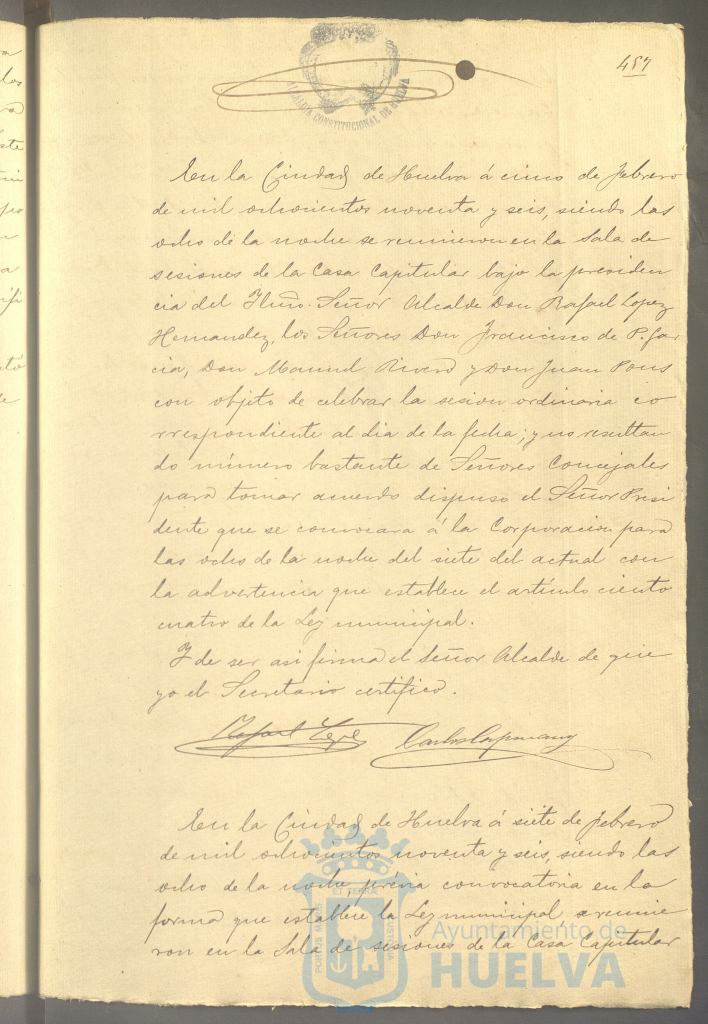 ALCALDIA CONSTITUCIONAL DE HUELVA
457
En la Ciudad de Huelva á cinco de Febrero
de mil ochocientos noventa y seis, siendo las
ocho de la noche se reunieron en la Sala de
sesiones de la Casa Capitular bajo la presiden
cia del Iltmo. Señor Alcalde Don Rafael Lopez
Hernandez, los Señores Don Francisco de P. Gar
cia, Don Manuel Rivero y Don Juan Pons
con objeto de celebrar la sesion ordinaria co
rrespondiente al dia de la fecha; y no resultan
do número bastante de Señores Concejales
para tomar acuerdo dispuso el Señor Presi
dente que se convocara á la Corporacion para
las ocho de la noche del siete del actual con
la advertencia que establece el artículo ciento
cuatro de la Ley municipal.
Y de ser asi firma el Señor Alcalde de que
yo el Secretario certifico.
Rafael Lopez Carlos
En la Ciudad de Huelva á siete de Febrero
de mil ochocientos noventa y seis, siendo las
ocho de la noche prévia convocatoria en la
forma que establece la Ley municipal, se reunie
ron en la Sala de sesiones de la Casa Capitular
PORTUS MARIS ET TERRÆ CUSTODIA
Ayuntamiento de
HUELVA